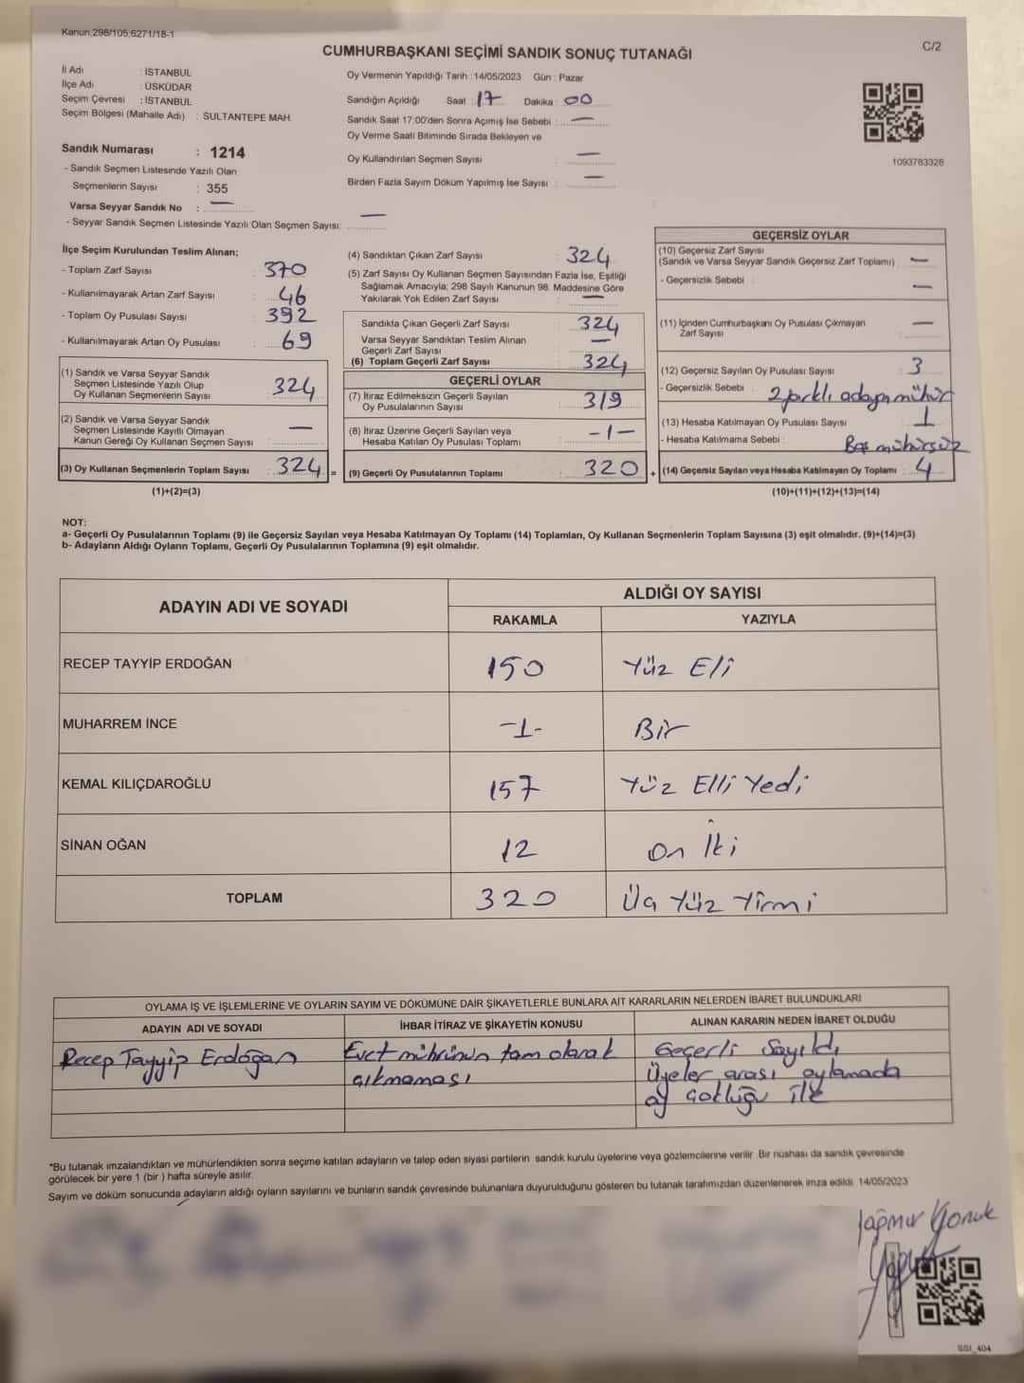 Kanun:298/105;6271/18-1
C/2
CUMHURBAŞKANI SEÇİMİ SANDIK SONUÇ TUTANAĞI
İl Adı : İSTANBUL
İlçe Adı : ÜSKÜDAR
Seçim Çevresi : İSTANBUL
Seçim Bölgesi (Mahalle Adı) : SULTANTEPE MAH.
Oy Vermenin Yapıldığı Tarih : 14/05/2023 Gün : Pazar
Sandığın Açıldığı Saat 17 Dakika : 00
Sandık Saat 17.00'den Sonra Açımış İse Sebebi : —
Oy Verme Saati Bitiminde Sırada Bekleyen ve
Oy Kullandırılan Seçmen Sayısı : —
Birden Fazla Sayım Döküm Yapılmış İse Sayısı : —
1093783328
Sandık Numarası : 1214
- Sandık Seçmen Listesinde Yazılı Olan
Seçmenlerin Sayısı : 355
Varsa Seyyar Sandık No : —
- Seyyar Sandık Seçmen Listesinde Yazılı Olan Seçmen Sayısı: —
İlçe Seçim Kurulundan Teslim Alınan;
- Toplam Zarf Sayısı 370
- Kullanılmayarak Artan Zarf Sayısı : 46
- Toplam Oy Pusulası Sayısı : 392
- Kullanılmayarak Artan Oy Pusulası : 69
(1) Sandık ve Varsa Seyyar Sandık
Seçmen Listesinde Yazılı Olup
Oy Kullanan Seçmenlerin Sayısı : 324
(2) Sandık ve Varsa Seyyar Sandık
Seçmen Listesinde Kayıtlı Olmayan
Kanun Gereği Oy Kullanan Seçmen Sayısı : —
(3) Oy Kullanan Seçmenlerin Toplam Sayısı : 324 =
(1)+(2)=(3)
(4) Sandıktan Çıkan Zarf Sayısı : 324
(5) Zarf Sayısı Oy Kullanan Seçmen Sayısından Fazla İse, Eşitliği
Sağlamak Amacıyla; 298 Sayılı Kanunun 98. Maddesine Göre
Yakılarak Yok Edilen Zarf Sayısı : —
Sandıkta Çıkan Geçerli Zarf Sayısı : 324
Varsa Seyyar Sandıktan Teslim Alınan
Geçerli Zarf Sayısı : —
(6) Toplam Geçerli Zarf Sayısı : 324
GEÇERLİ OYLAR
(7) İtiraz Edilmeksizin Geçerli Sayılan
Oy Pusulalarının Sayısı : 319
(8) İtiraz Üzerine Geçerli Sayılan veya
Hesaba Katılan Oy Pusulası Toplamı : -1-
(9) Geçerli Oy Pusulalarının Toplamı : 320 +
GEÇERSİZ OYLAR
(10) Geçersiz Zarf Sayısı
(Sandık ve Varsa Seyyar Sandık Geçersiz Zarf Toplamı) : —
- Geçersizlik Sebebi : —
(11) İçinden Cumhurbaşkanı Oy Pusulası Çıkmayan
Zarf Sayısı : —
(12) Geçersiz Sayılan Oy Pusulası Sayısı : 3
- Geçersizlik Sebebi : 2 farklı adaya mühür
(13) Hesaba Katılmayan Oy Pusulası Sayısı : 1
- Hesaba Katılmama Sebebi : Boş mühürsüz
(14) Geçersiz Sayılan veya Hesaba Katılmayan Oy Toplamı : 4
(10)+(11)+(12)+(13)=(14)
NOT:
a- Geçerli Oy Pusulalarının Toplamı (9) ile Geçersiz Sayılan veya Hesaba Katılmayan Oy Toplamı (14) Toplamları, Oy Kullanan Seçmenlerin Toplam Sayısına (3) eşit olmalıdır. (9)+(14)=(3)
b- Adayların Aldığı Oyların Toplamı, Geçerli Oy Pusulalarının Toplamına (9) eşit olmalıdır.
ADAYIN ADI VE SOYADI
ALDIĞI OY SAYISI
RAKAMLA YAZIYLA
RECEP TAYYİP ERDOĞAN 150 Yüz Eli
MUHARREM İNCE -1- Bir
KEMAL KILIÇDAROĞLU 157 Yüz Elli Yedi
SİNAN OĞAN 12 On İki
TOPLAM 320 Üç Yüz Yirmi
OYLAMA İŞ VE İŞLEMLERİNE VE OYLARIN SAYIM VE DÖKÜMÜNE DAİR ŞİKAYETLERLE BUNLARA AİT KARARLARIN NELERDEN İBARET BULUNDUKLARI
ADAYIN ADI VE SOYADI İHBAR İTİRAZ VE ŞİKAYETİN KONUSU ALINAN KARARIN NEDEN İBARET OLDUĞU
Recep Tayyip Erdoğan Evet mührünün tam olarak Geçerli Sayıldı
çıkmaması Üyeler arası oylamada
oy çokluğu ile
*Bu tutanak imzalandıktan ve mühürlendikten sonra seçime katılan adayların ve talep eden siyasi partilerin sandık kurulu üyelerine veya gözlemcilerine verilir. Bir nüshası da sandık çevresinde
görülecek bir yere 1 (bir) hafta süreyle asılır.
Sayım ve döküm sonucunda adayların aldığı oyların sayılarını ve bunların sandık çevresinde bulunanlara duyurulduğunu gösteren bu tutanak tarafımızdan düzenlenerek imza edildi. 14/05/2023
Yağmur Konuk